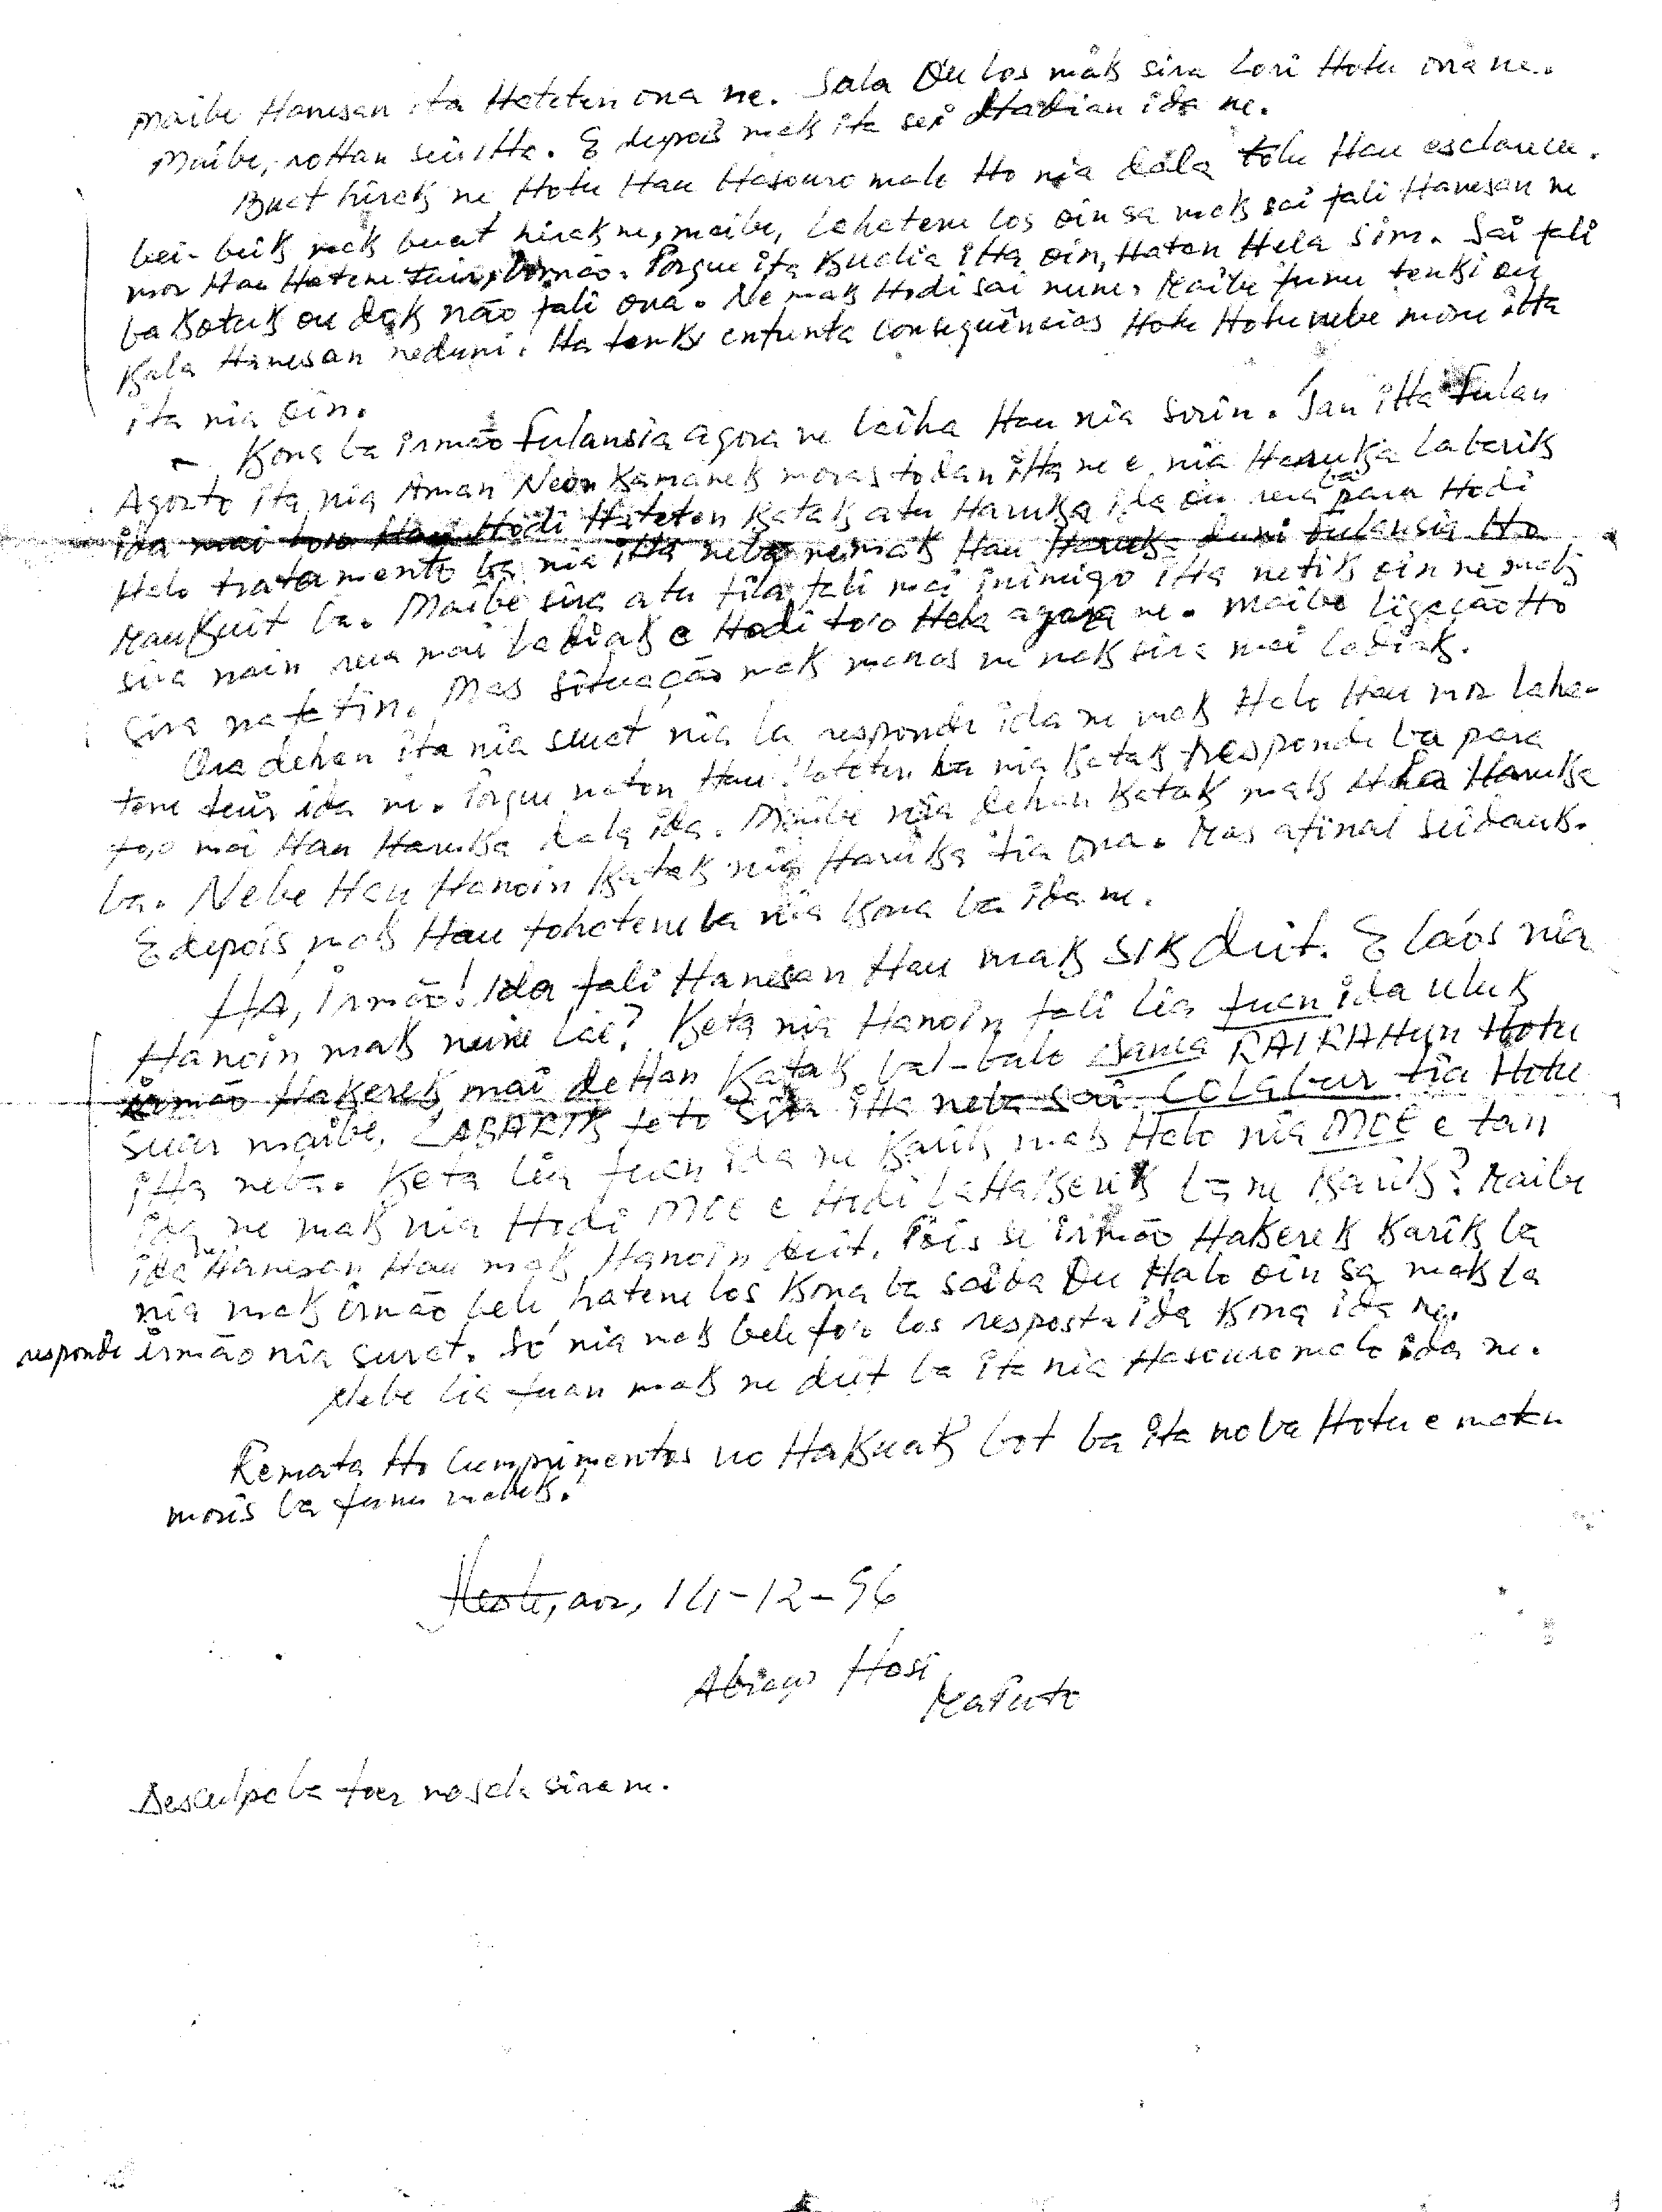 Maibe Hanesan ita Hateten ona ne. Sala Ou los mak sira Lori Hotu ona ne.
Maibe, no Hau sei iHa. E depois mak ita sei Hadian ida ne.
Buat hirak ne Hotu Hau Hasouro malo Ho nia dala tolu Hau esclarece.
bei-beik mak buat hirak ne, maibe, lahatene los oin sa mak sai fali Hanesan ne
mos Hau Hatene irmão. Porque ita Kualia iHa oin, Hatan Hela sim. Sai fali
ba Kotuk ou dak não fali ona. Ne mak Hodi sai nune. Maibe funu tenki ou
Kala Hanesan neduni. Ita tenki enfrenta consequências Hotu Hotu nebe mosu iHa
ita nia oin.
- Kona ba irmão Fulansia agora ne laiha Hau nia sorin. Tan iHa Fulan
Agosto ita nia Aman Neon Kamanek moras todan iHa ne e nia Haruka labarik
ida mai Hau Hodi Hateten Katak atu Haruka ida ou rua ba para Hodi
Halo tratamento ba nia iHa neba ne mak Hau duni Fulansia Ho
Maukuit ba. Maibe sira atu fila fali mai inimigo iHa netik oin ne mak
sira nain rua mai ladiak e Hodi to'o Hela agora ne. Maibe ligação Ho
sira nafatin. Mas situação mak manas ne mak sira mai ladiak.
Ora dehan ita nia surat nia la responde ida ne mak Halo Hau mos lahe-
tene ida ne. Porque naton Hau Hateten ba nia Katak responde ba para
to'o mai Hau Haruka dala ida. Maibe nia dehan Katak mak Haruka
ba. Nebe Hau Hanoin Katak nia Haruka tia ona. Mas afinal seidauk.
E depois mak Hau fohatene ba nia Kona ba ida ne.
Ho, irmão! Ida fali Hanesan Hau mak SIK duit. E laós nia
Hanoin mak nune lae? Keta nia Hanoin fali lia fuan ida uluk
irmão Hakerek mai deHan Katak bal-balo RAIRAHun Hotu
suar maibe, LABARIK feto sira iHa neba sai COLABUR tia Hotu
iHa neba. Keta lia fuan ida ne Karik mak Halo nia MOE e tan
ida ne mak nia Hodi MOE e Hodi laHakerek ba ne Karik? Maibe
ida ne Hanesan Hau mak Hanoin duit. Pois se irmão Hakerek Karik ba
nia mak irmão bele hatene los Kona ba saida Ou Halo oin sa mak la
responde irmão nia surat. Só nia mak bele fo'o los resposta ida Kona ida ne.
Nebe lia fuan mak ne duit ba ita nia Hasouro malo ida ne.
Remata Ho Cumprimentos no Hakuak bot ba ita no ba Hotu e
moris ba funu
aos, 14-12-96
Hosi
Maputo
Desculpa ba no sala sira ne.